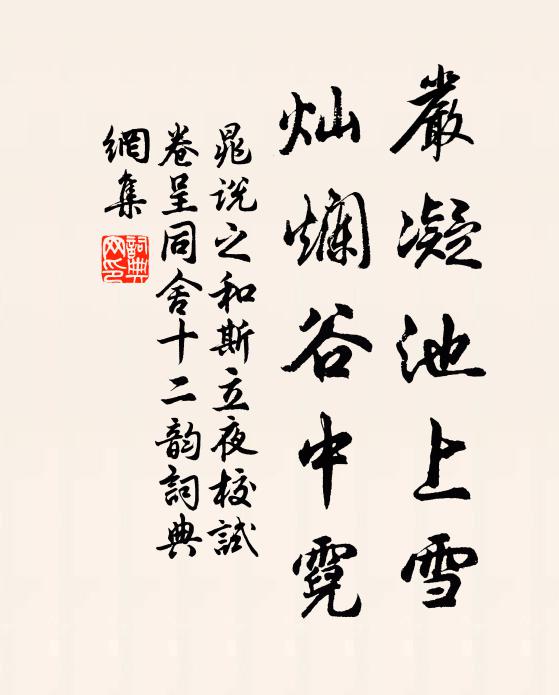 嚴凝池上雪
灿爛谷中霓
晁说之和斯立夜校試
卷呈同舍十二韵詞典
網集
詞典網印